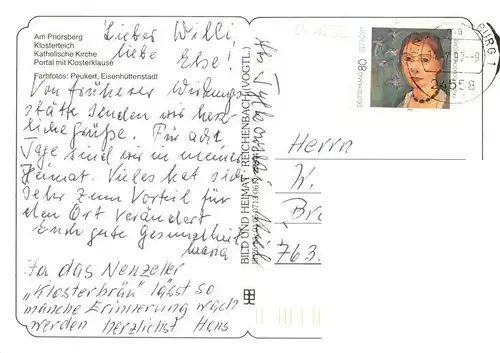 Am Priorsberg
Klosterteich
Katholische Kirche
Portal mit Klosterklause
Farbfotos: Peukert, Eisenhüttenstadt
Lieber Willi,
liebe Else!
Von früherer Wirkungs-
stätte senden wir herz-
liche Grüße. Für acht
Tage sind wir in meiner
Heimat. Vieles hat sich
sehr zum Vorteil für
den Ort verändert
Euch gute Gesundheit
Maria
Ja das Nenzeller
„Klosterbräu" lässt so
manche Erinnerung wach
werden herzlichst Hans
BILD UND HEIMAT · REICHENBACH (VOGTL.)
DEUTSCHLAND 80
EUROPA
BURG 1
97-9
24558
Herrn
W.
Br
763